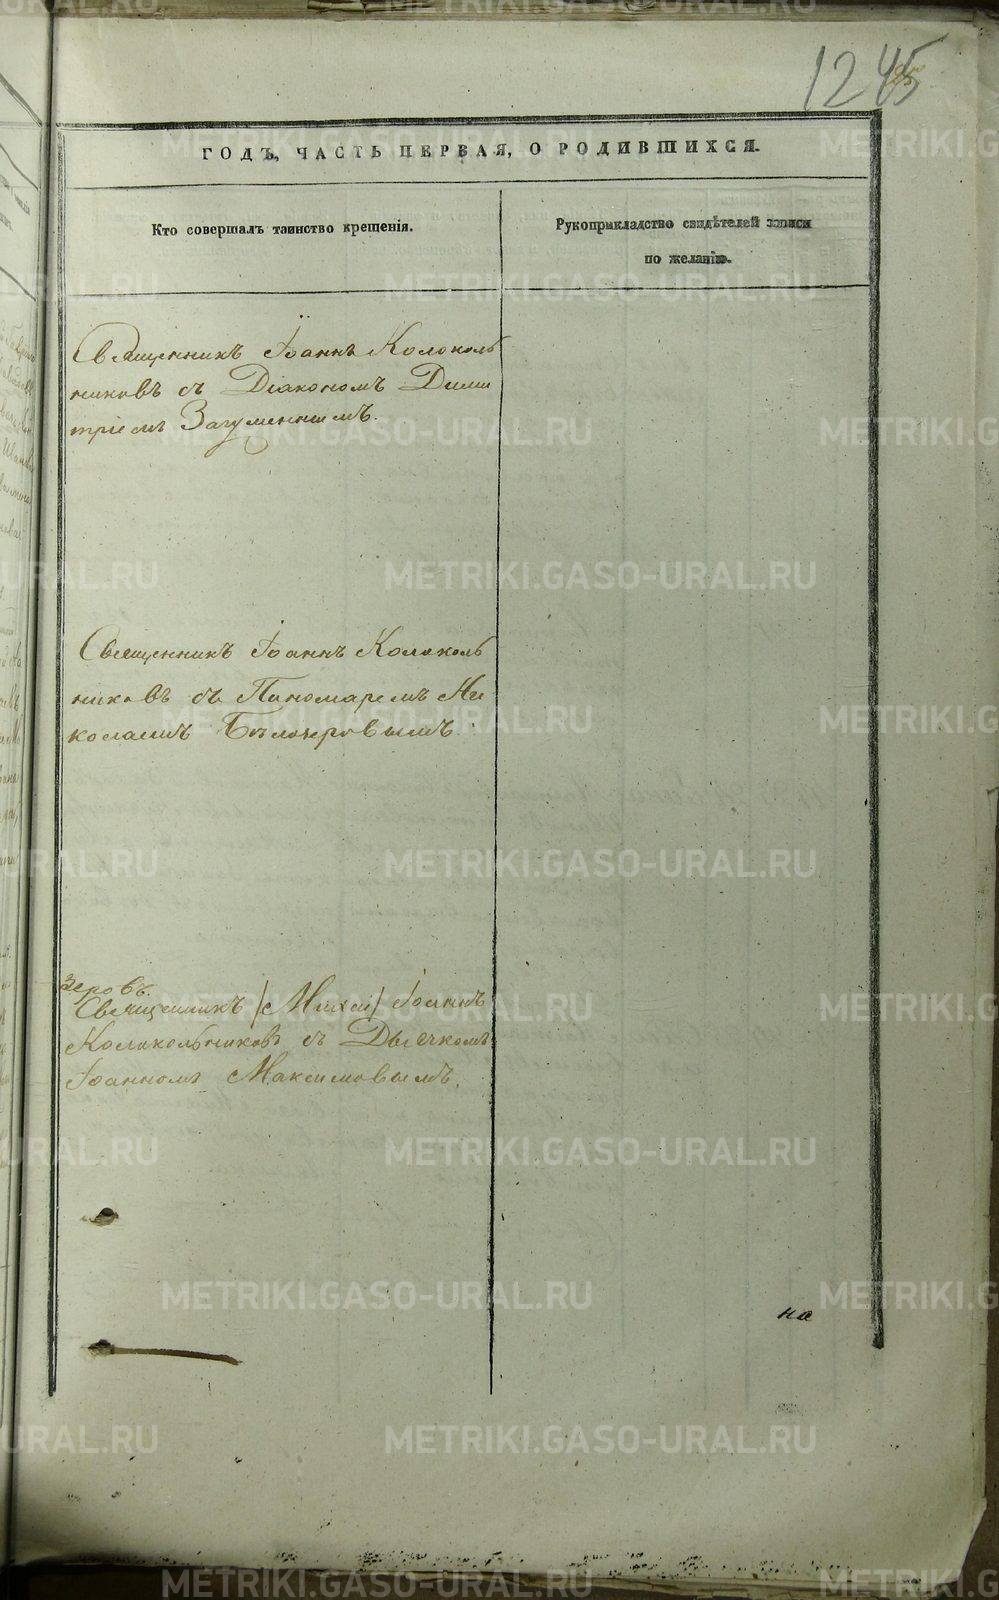 1245
ГОДЪ, ЧАСТЬ ПЕРВАЯ, О РОДИВШИХСЯ.
Кто совершалъ таинство крещенія.
Рукоприкладство свидѣтелей записи
по желанію.
Священникъ Іоаннъ Колоколь
никовъ съ Діакономъ Дими
тріемъ Загуменнымъ.
Священникъ Іоаннъ Колоколь
никовъ съ Пономаремъ Ни
колаемъ Бѣлозеровымъ.
зеровъ.
Священникъ /Михаи/ Іоаннъ
Колокольниковъ съ Дьячкомъ
Іоанномъ Максимовымъ.
на
METRIKI.GASO-URAL.RU